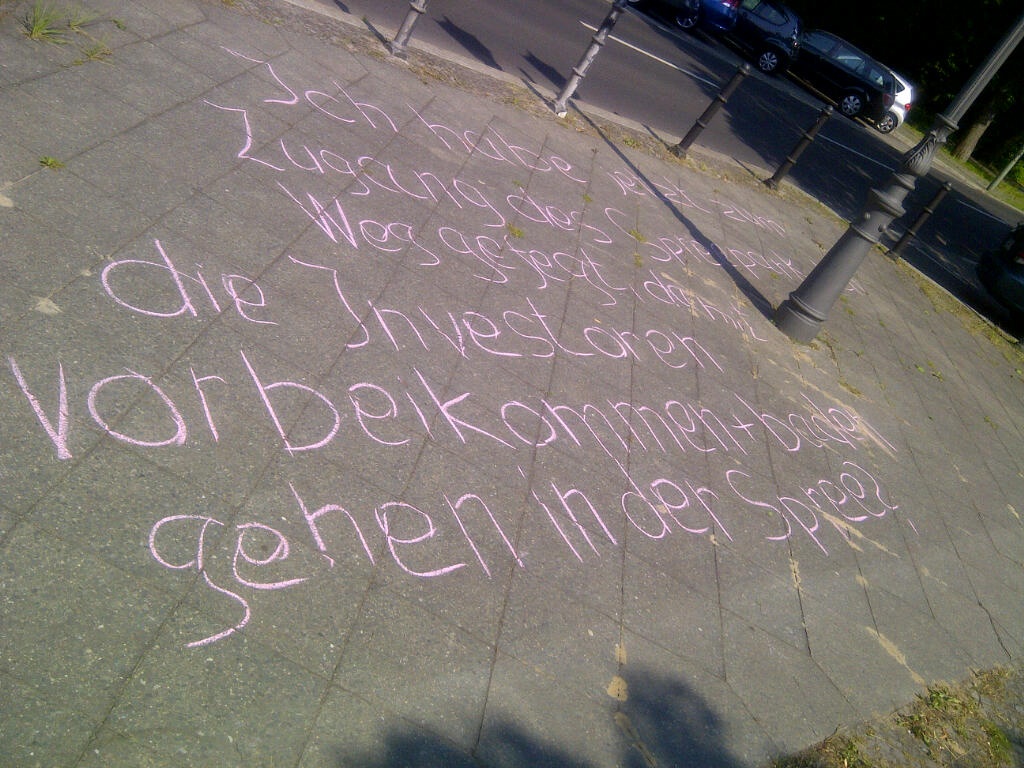 Ich habe jetzt zum
Zugang des Spreepark
Weg gefegt, damit
die Investoren
vorbeikommen + baden
gehen in der Spree?